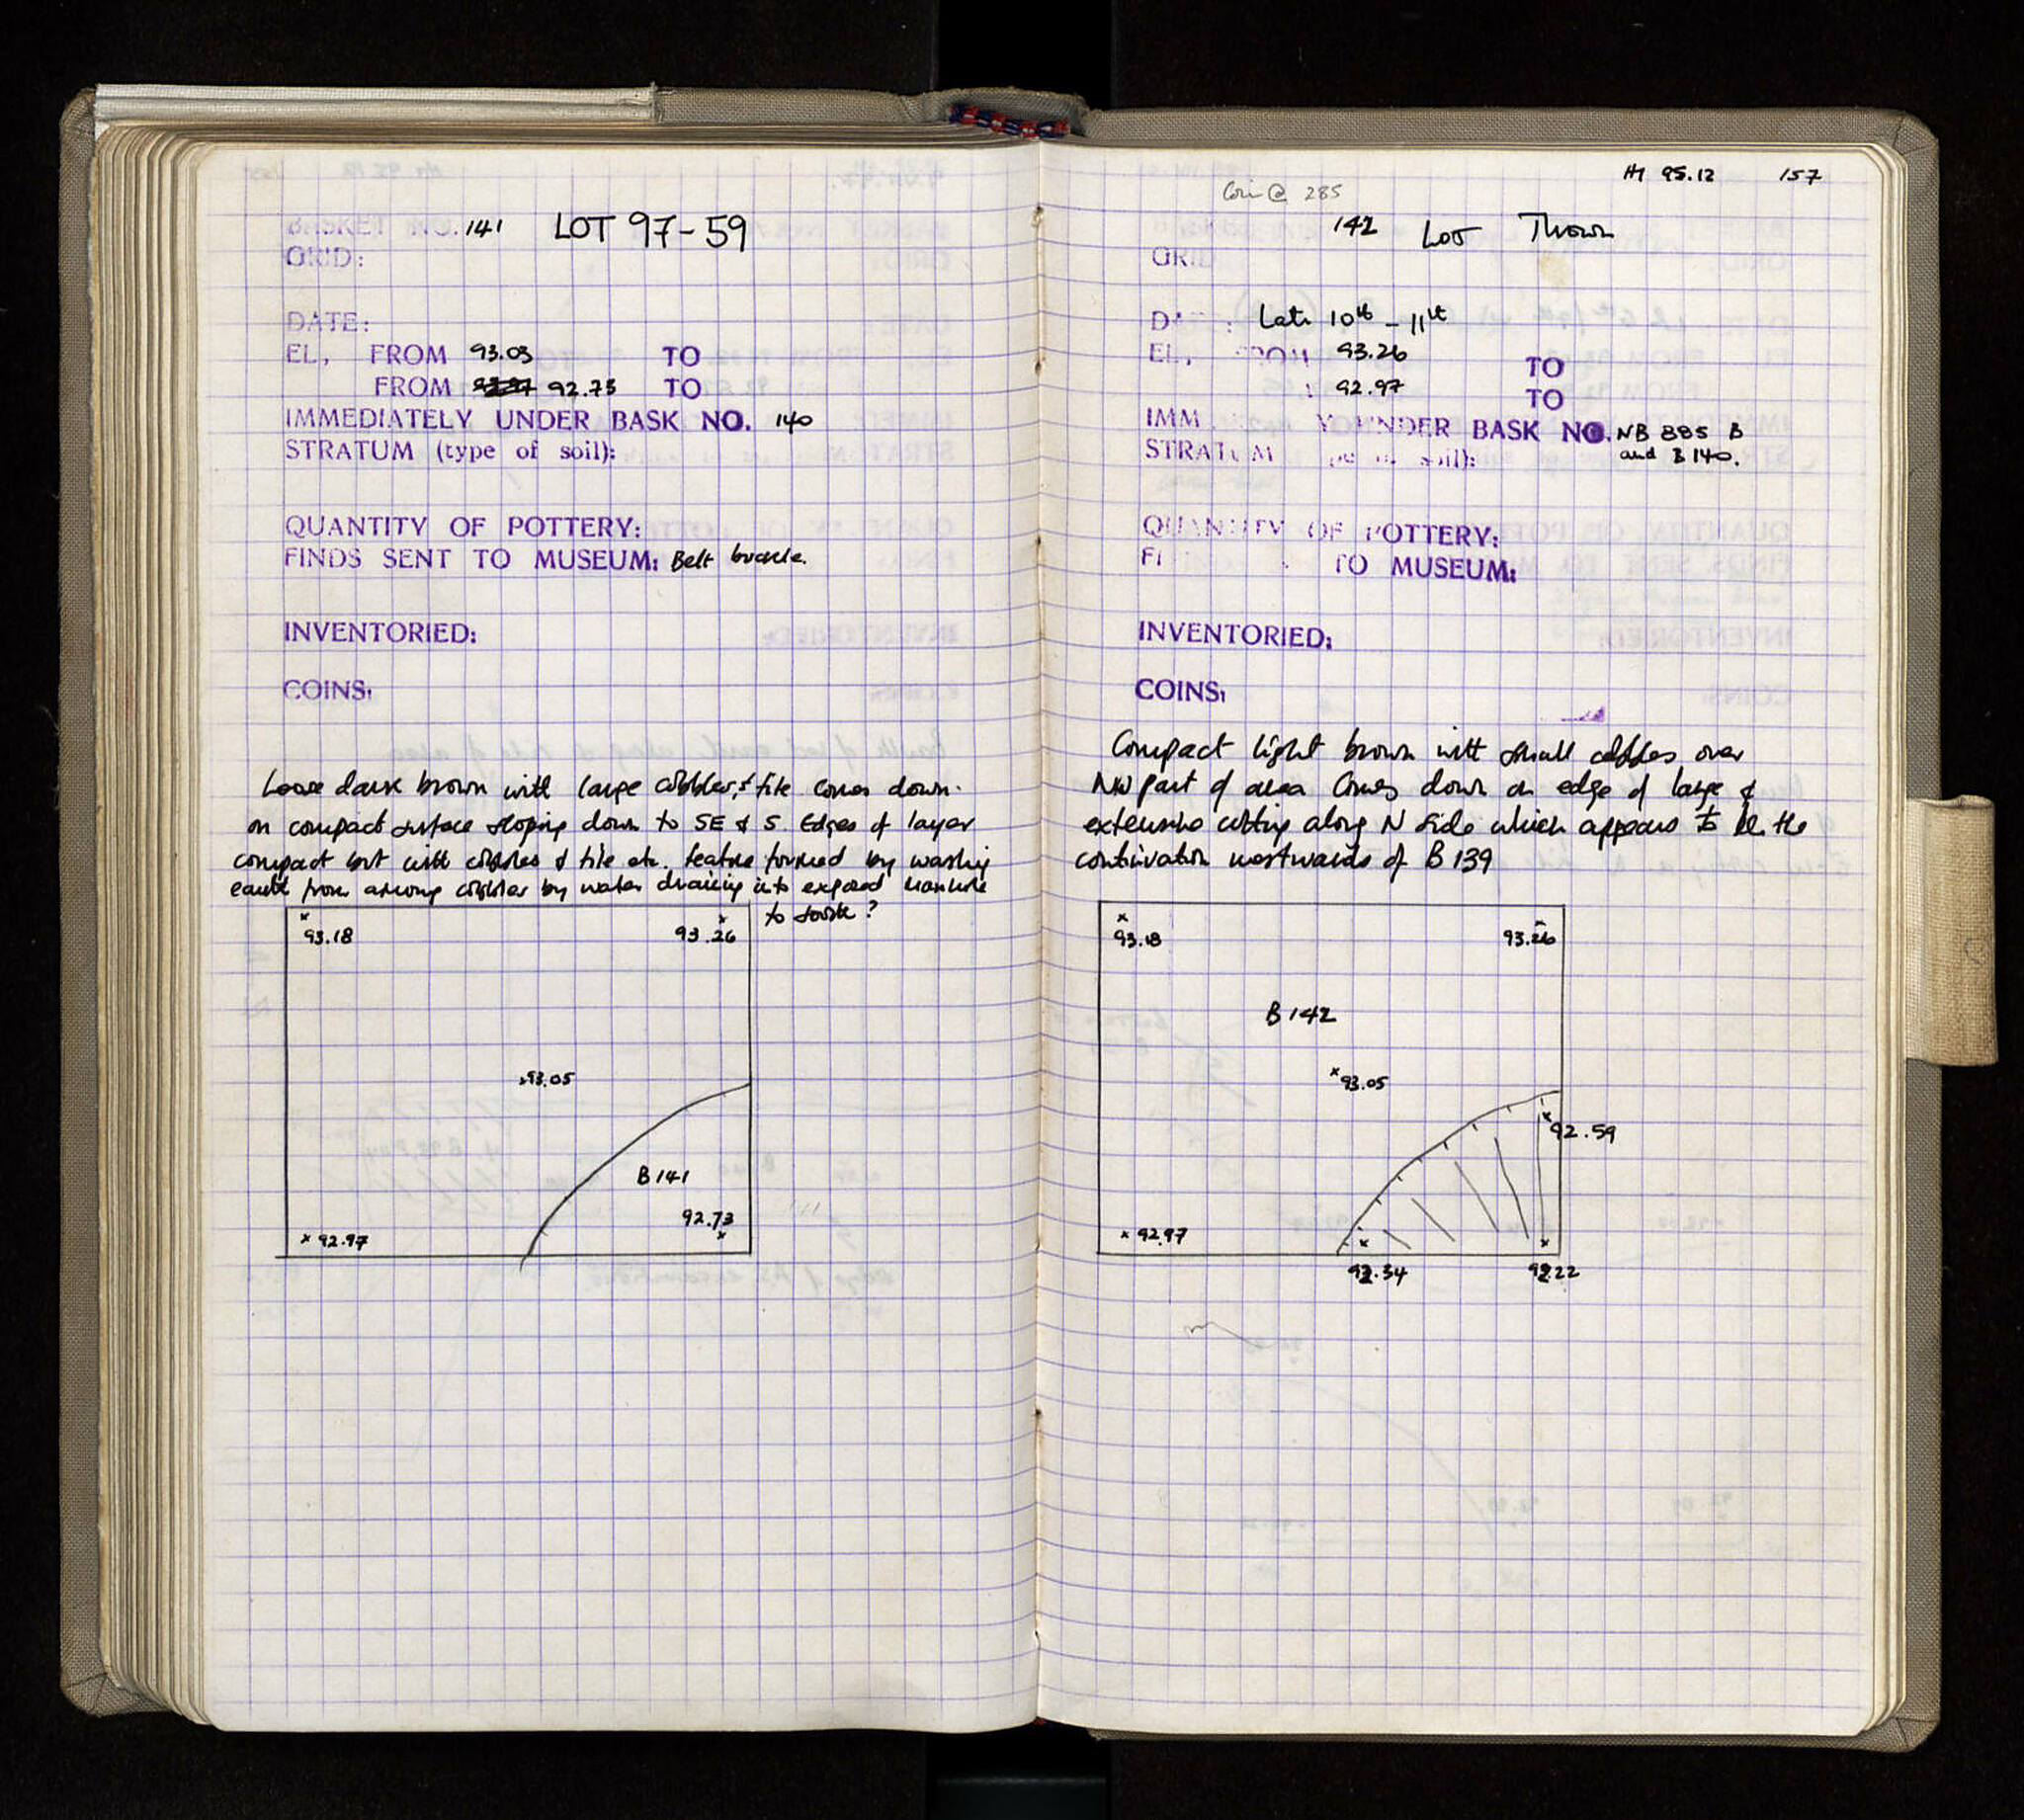 BASKET NO. 141 LOT 97-59
GRID:
DATE:
EL, FROM 93.05 TO
FROM 92.73 TO
IMMEDIATELY UNDER BASK NO. 140
STRATUM (type of soil):
QUANTITY OF POTTERY:
FINDS SENT TO MUSEUM: Belt buckle.
INVENTORIED:
COINS:
Loose dark brown with large cobbles, & tile comes down
on compact surface sloping down to SE & S. Edges of layer
compact but with cobbles & tile etc. feature formed by washing
earth from among cobbles by water draining into exposed manhole
to south?
93.18 93.26
93.05
B 141
92.73
92.97
H 95.12 157
Coin @ 285
142 Lot Thrown
GRID
DATE: Late 10th - 11th
EL, FROM 93.26 TO
: 92.97 TO
IMM Y UNDER BASK NO. NB 885 B
STRATUM pe of soil): and B 140.
QUANTITY OF POTTERY:
FI TO MUSEUM:
INVENTORIED:
COINS:
Compact light brown with small cobbles over
NW part of area Comes down on edge of large &
extensive cutting along N side which appears to be the
continuation westwards of B 139
93.18 93.26
B 142
93.05
92.59
92.97
92.34 92.22